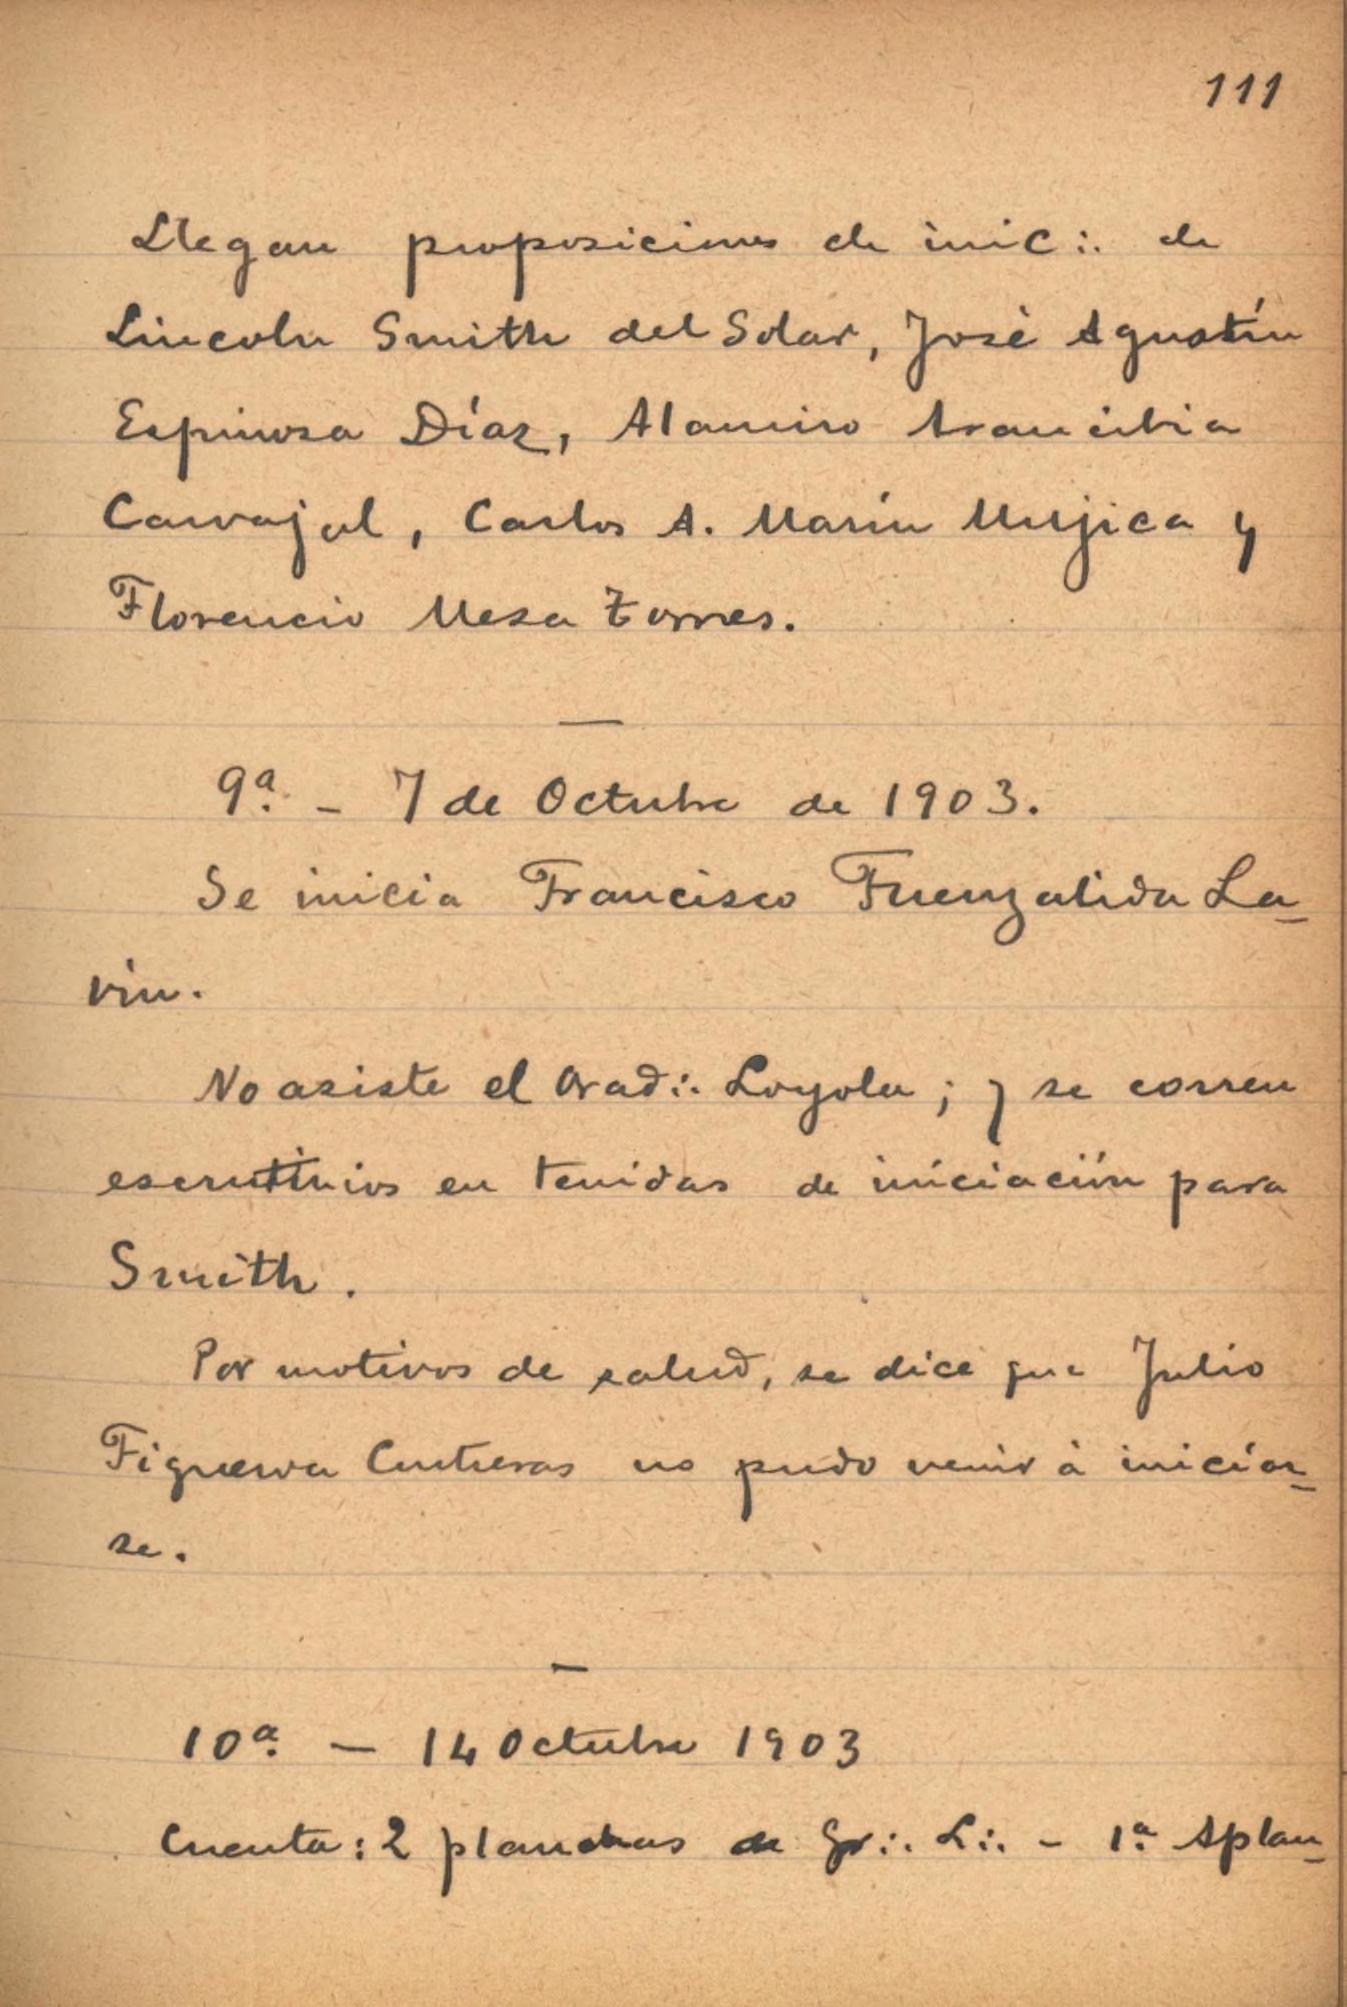 111
Llegan proposiciones de inic∴ de
Lincoln Smith del Solar, José Agustín
Espinosa Díaz, Alamiro Arancibia
Carvajal, Carlos A. Marín Mujica y
Florencio Meza Torres.
—
9ª. - 7 de Octubre de 1903.
Se inicia Francisco Fuenzalida La-
vín.
No asiste el Orad∴ Loyola; y se corren
escrutinios en tenidas de iniciación para
Smith.
Por motivos de salud, se dice que Julio
Figueroa Contreras no pudo venir à inicíar-
se.
—
10ª. — 14 Octubre 1903
Cuenta: 2 planchas de Gr∴ L∴ - 1ª. Aplau-